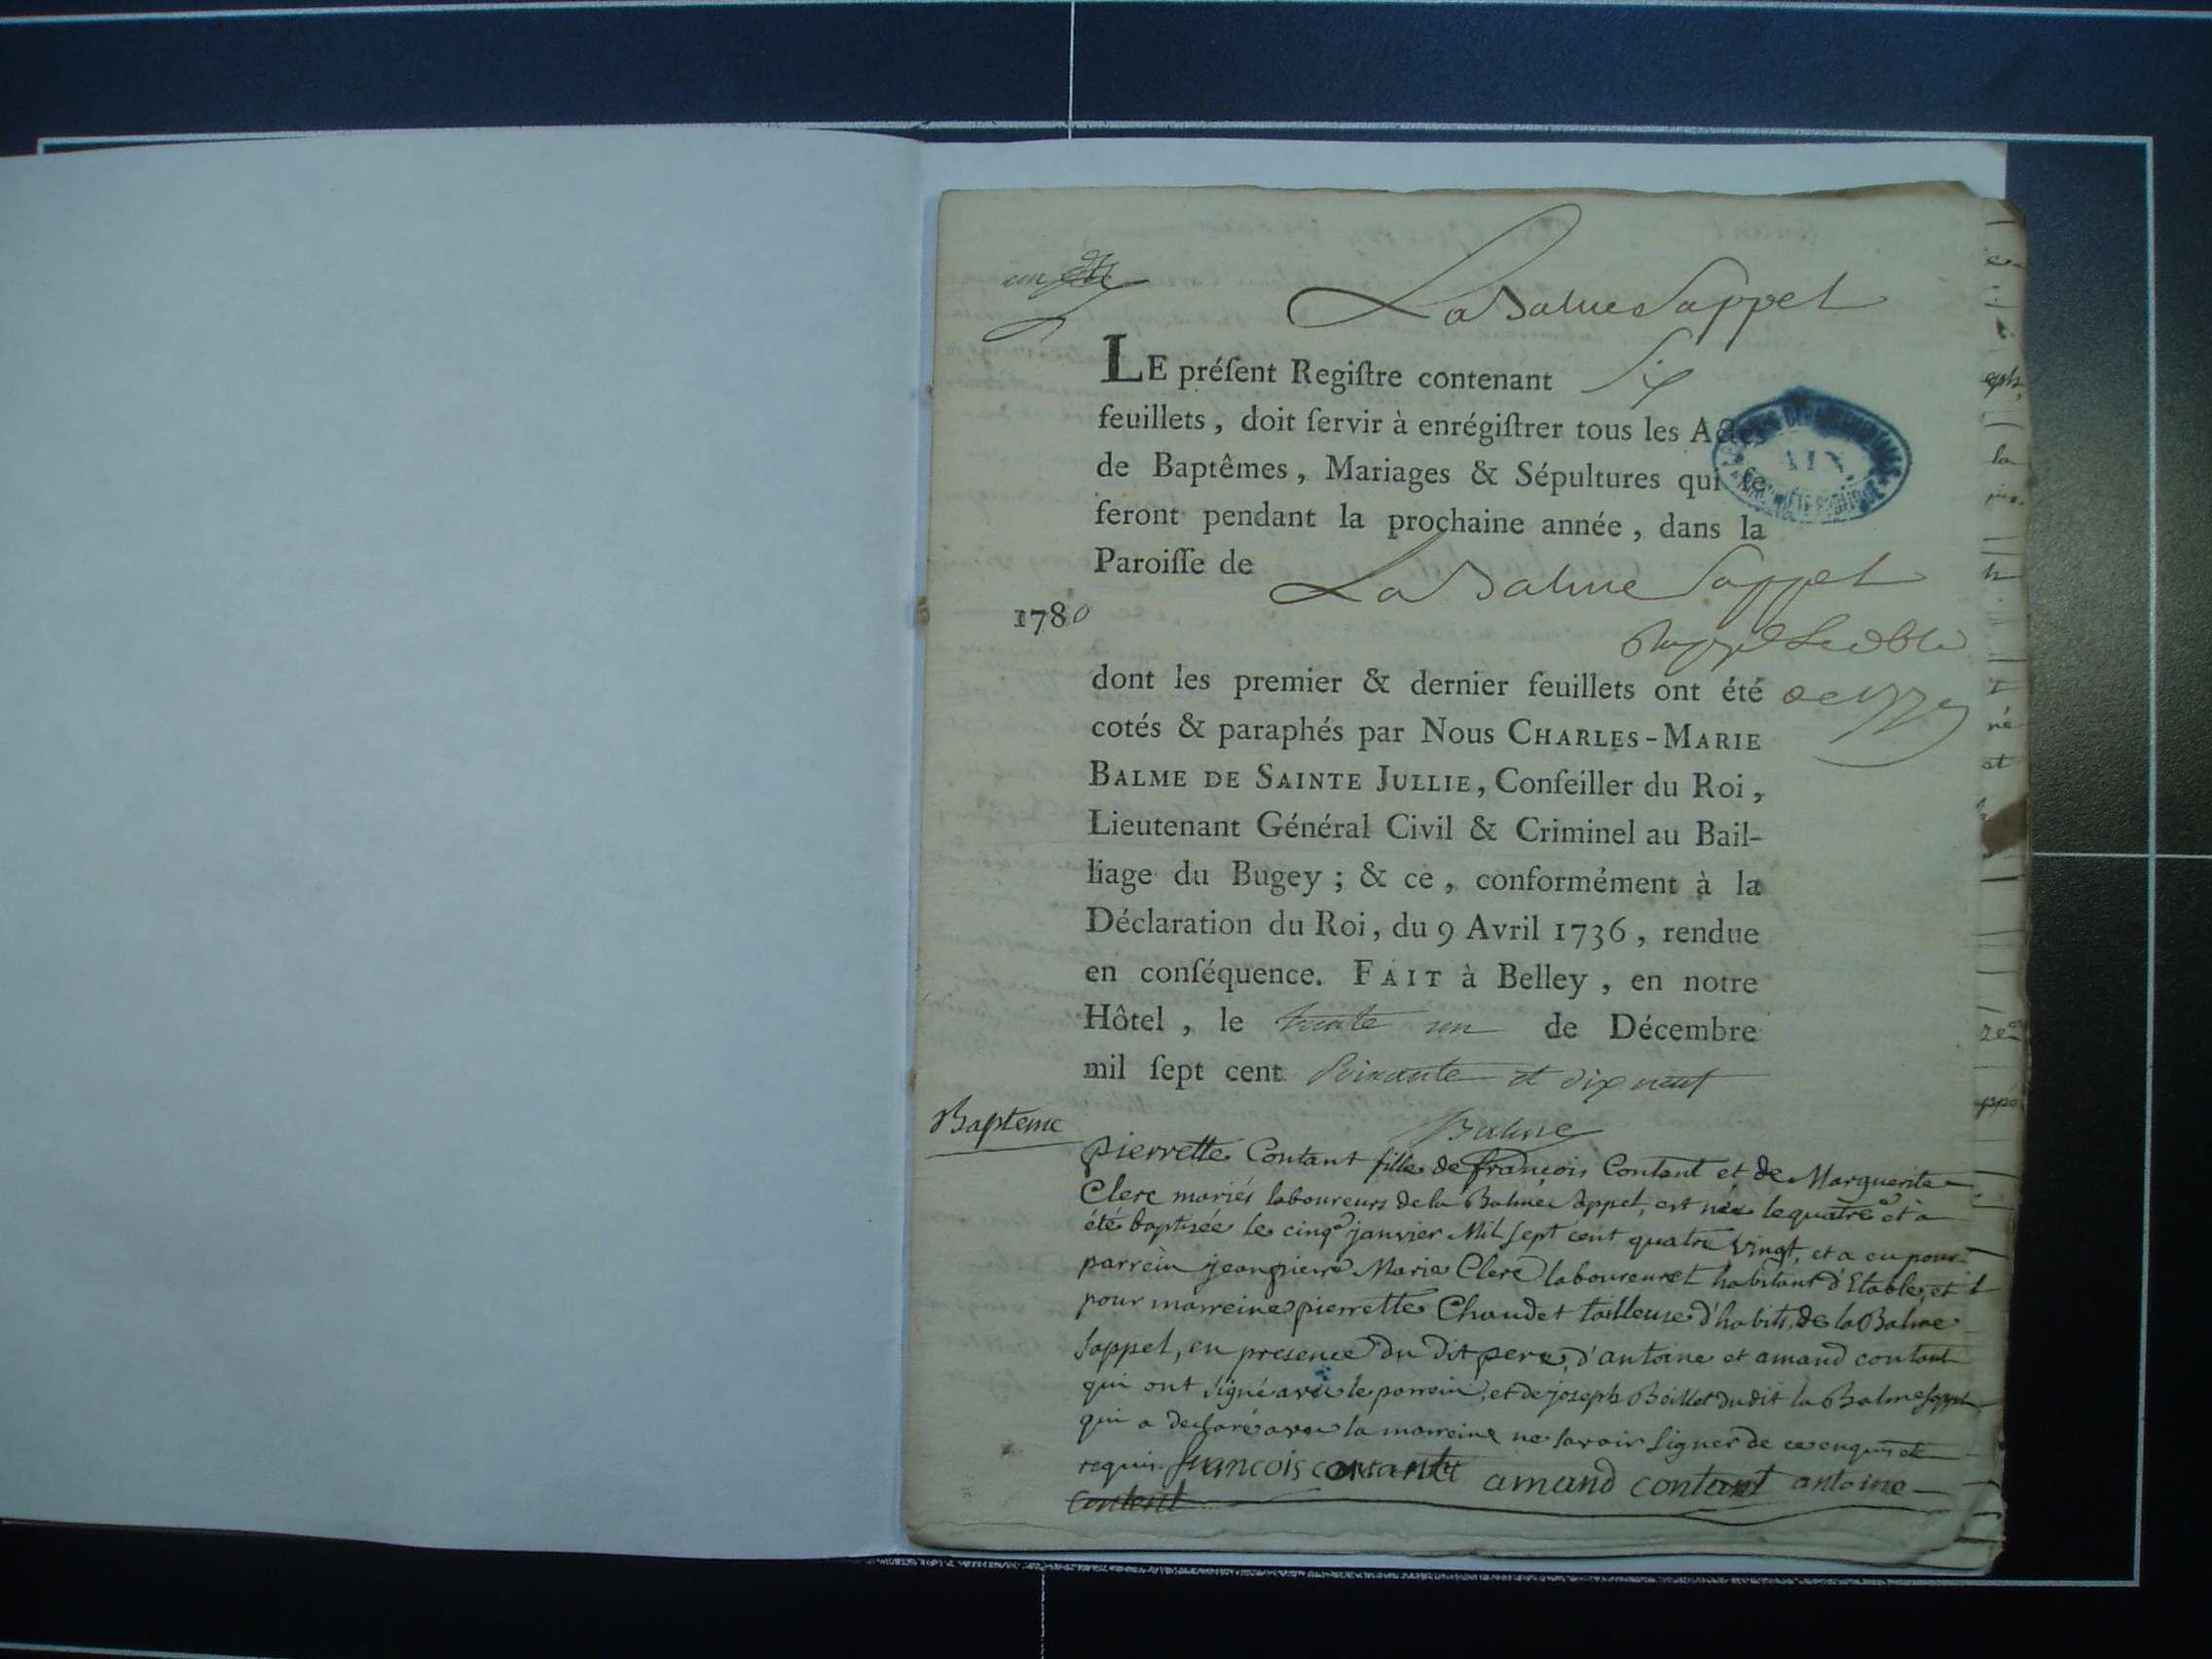 un
La Balme Sappel
LE préſent Regiſtre contenant Six
feuillets, doit ſervir à enrégiſtrer tous les Actes
de Baptêmes, Mariages & Sépultures qui ſe
feront pendant la prochaine année, dans la
Paroiſſe de La Balme Sappel
1780
dont les premier & dernier feuillets ont été
cotés & paraphés par Nous CHARLES-MARIE
BALME DE SAINTE JULLIE, Conſeiller du Roi,
Lieutenant Général Civil & Criminel au Bail-
liage du Bugey ; & ce, conformément à la
Déclaration du Roi, du 9 Avril 1736, rendue
en conſéquence. FAIT à Belley, en notre
Hôtel, le trente un de Décembre
mil ſept cent soixante et dix neuf
Balme
Bapteme
pierrette Contant fille de françois Contant et de Marguerite
Clerc mariés laboureurs de la Balme Sappel, est née le quatre et a
été baptisée le cinq janvier Mil sept cent quatre vingt, et a eu pour
parrein jean pierre Marie Clerc laboureur et habitant d'Etable, et
pour marreine pierrette Chaudet tailleuse d'habits de la Balme
Sappel, en presence du dit pere, d'antoine et amand contant
qui ont signé avec le parrein, et de joseph Boillet du dit la Balme Sappel
qui a declaré avec la marreine ne savoir signer de ce enquis et
requis. francois contant amand contant antoine
Contant
AIN